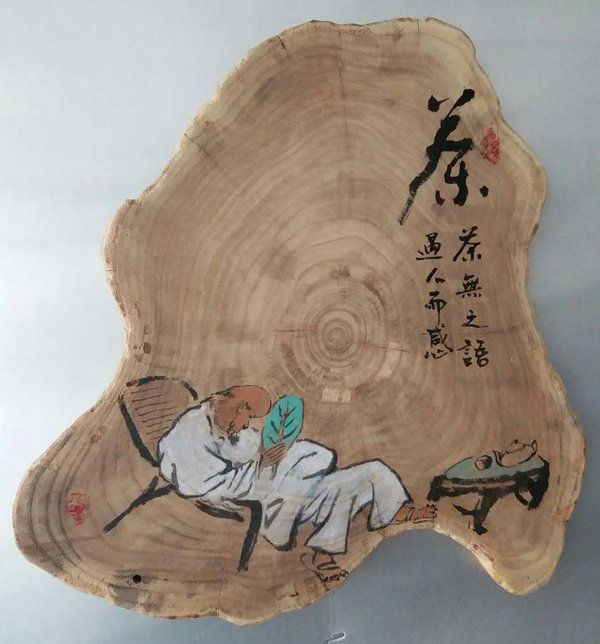 茶
茶無之語
遇人而感